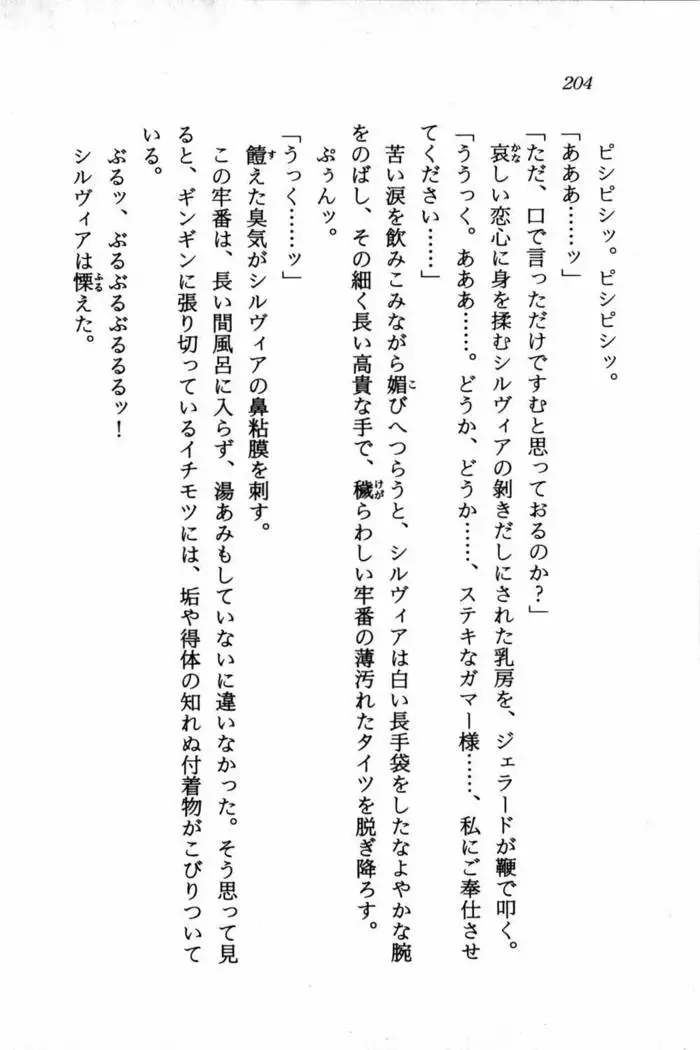 204
ピシピシッ。ピシピシッ。
「あああ……ッ」
「ただ、口で言っただけですむと思っておるのか？」
哀しい恋心に身を揉むシルヴィアの剝きだしにされた乳房を、ジェラードが鞭で叩く。
「ううっく。あああ……。どうか、どうか……、ステキなガマー様……、私にご奉仕させ
てください……」
苦い涙を飲みこみながら媚びへつらうと、シルヴィアは白い長手袋をしたなよやかな腕
をのばし、その細く長い高貴な手で、穢らわしい牢番の薄汚れたタイツを脱ぎ降ろす。
ぷぅんッ。
「うっく……ッ」
饐えた臭気がシルヴィアの鼻粘膜を刺す。
この牢番は、長い間風呂に入らず、湯あみもしていないに違いなかった。そう思って見
ると、ギンギンに張り切っているイチモツには、垢や得体の知れぬ付着物がこびりついて
いる。
ぶるッ、ぶるぶるぶるるるッ！
シルヴィアは慄えた。